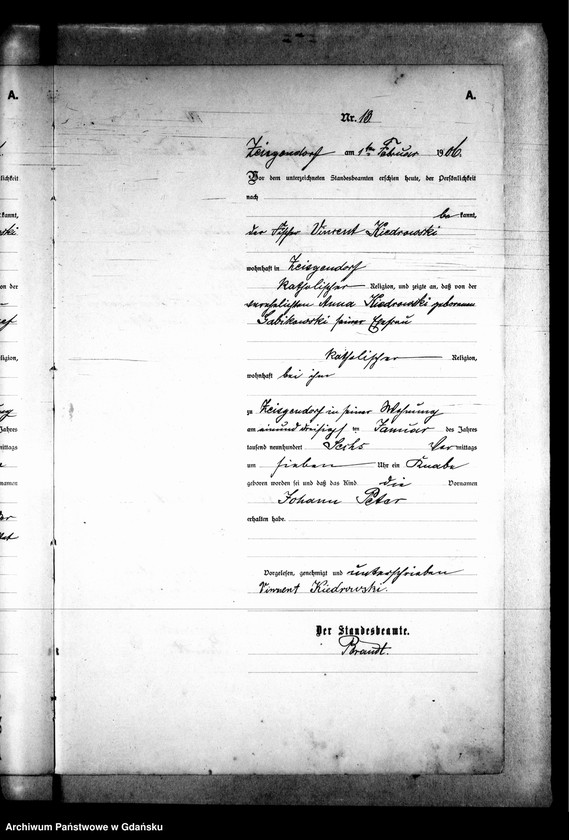 A.
A.
Nr. 13
Zeisgendorf am 1ten Februar 1906.
Vor dem unterzeichneten Standesbeamten erschien heute, der Persönlichkeit
nach
be kannt,
der Fischer Vincent Kiedrowski
wohnhaft in Zeisgendorf
katholischer Religion, und zeigte an, daß von der
verehelichten Anna Kiedrowski geborenen
Gabikowski seiner Ehefrau
katholischer Religion,
wohnhaft bei ihm
zu Zeisgendorf in seiner Wohnung
am einund dreißigsten Januar des Jahres
tausend neunhundert Sechs Vor mittags
um sieben Uhr ein Knabe
geboren worden sei und daß das Kind die Vornamen
Johann Peter
erhalten habe.
Vorgelesen, genehmigt und unterschrieben
Vincent Kiedrowski.
Der Standesbeamte.
Brandt.
lichkeit
kannt,
ski
on der
ligion,
Jahres
mittags
rnamen
Archiwum Państwowe w Gdańsku